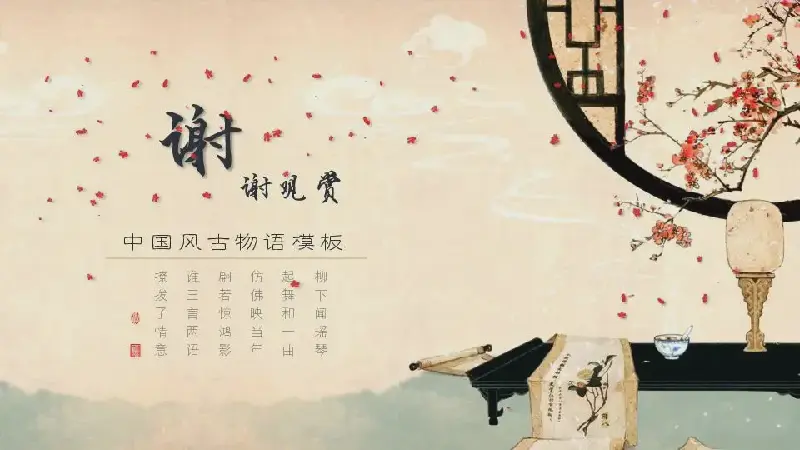 谢
谢观赏
中国风古物语模板
柳下闻瑶琴
起舞和一曲
仿佛映当年
刷若惊鸿影
谁三言两语
撩拨了情意